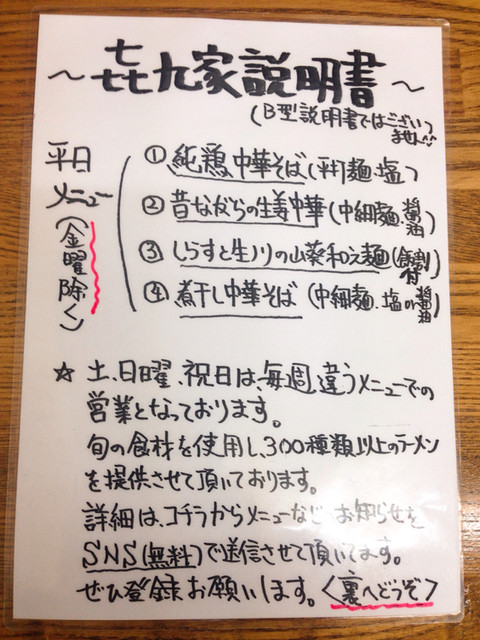 ～㐂九家説明書～
(B型説明書ではございません)
平日メニュー(金曜除く)
① 純鶏中華そば(平打麺.塩)
② 昔ながらの生姜中華(中細麺.醤油)
③ しらすと生ノリの山葵和え麺(飯割付)
④ 煮干し中華そば(中細麺、塩or醤油)
☆ 土、日曜、祝日は、毎週、違うメニューでの
営業となっております。
旬の食材を使用し、300種類以上のラーメン
を提供させて頂いております。
詳細は、コチラからメニューなど お知らせを
SNS(無料)で送信させて頂いてます。
ぜひ登録お願いします。〈裏へどうぞ〉